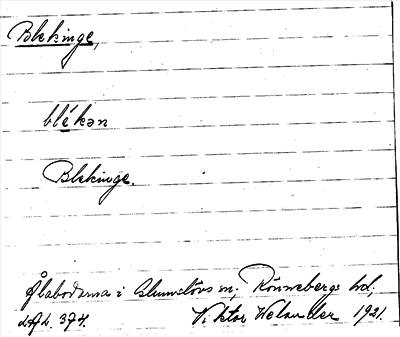 Blekinge,
blékən
Blekinge.
Ålabodarna i Glumslövs sn, Rönnebergs hd,
LAL. 394. Viktor Welander 1921.